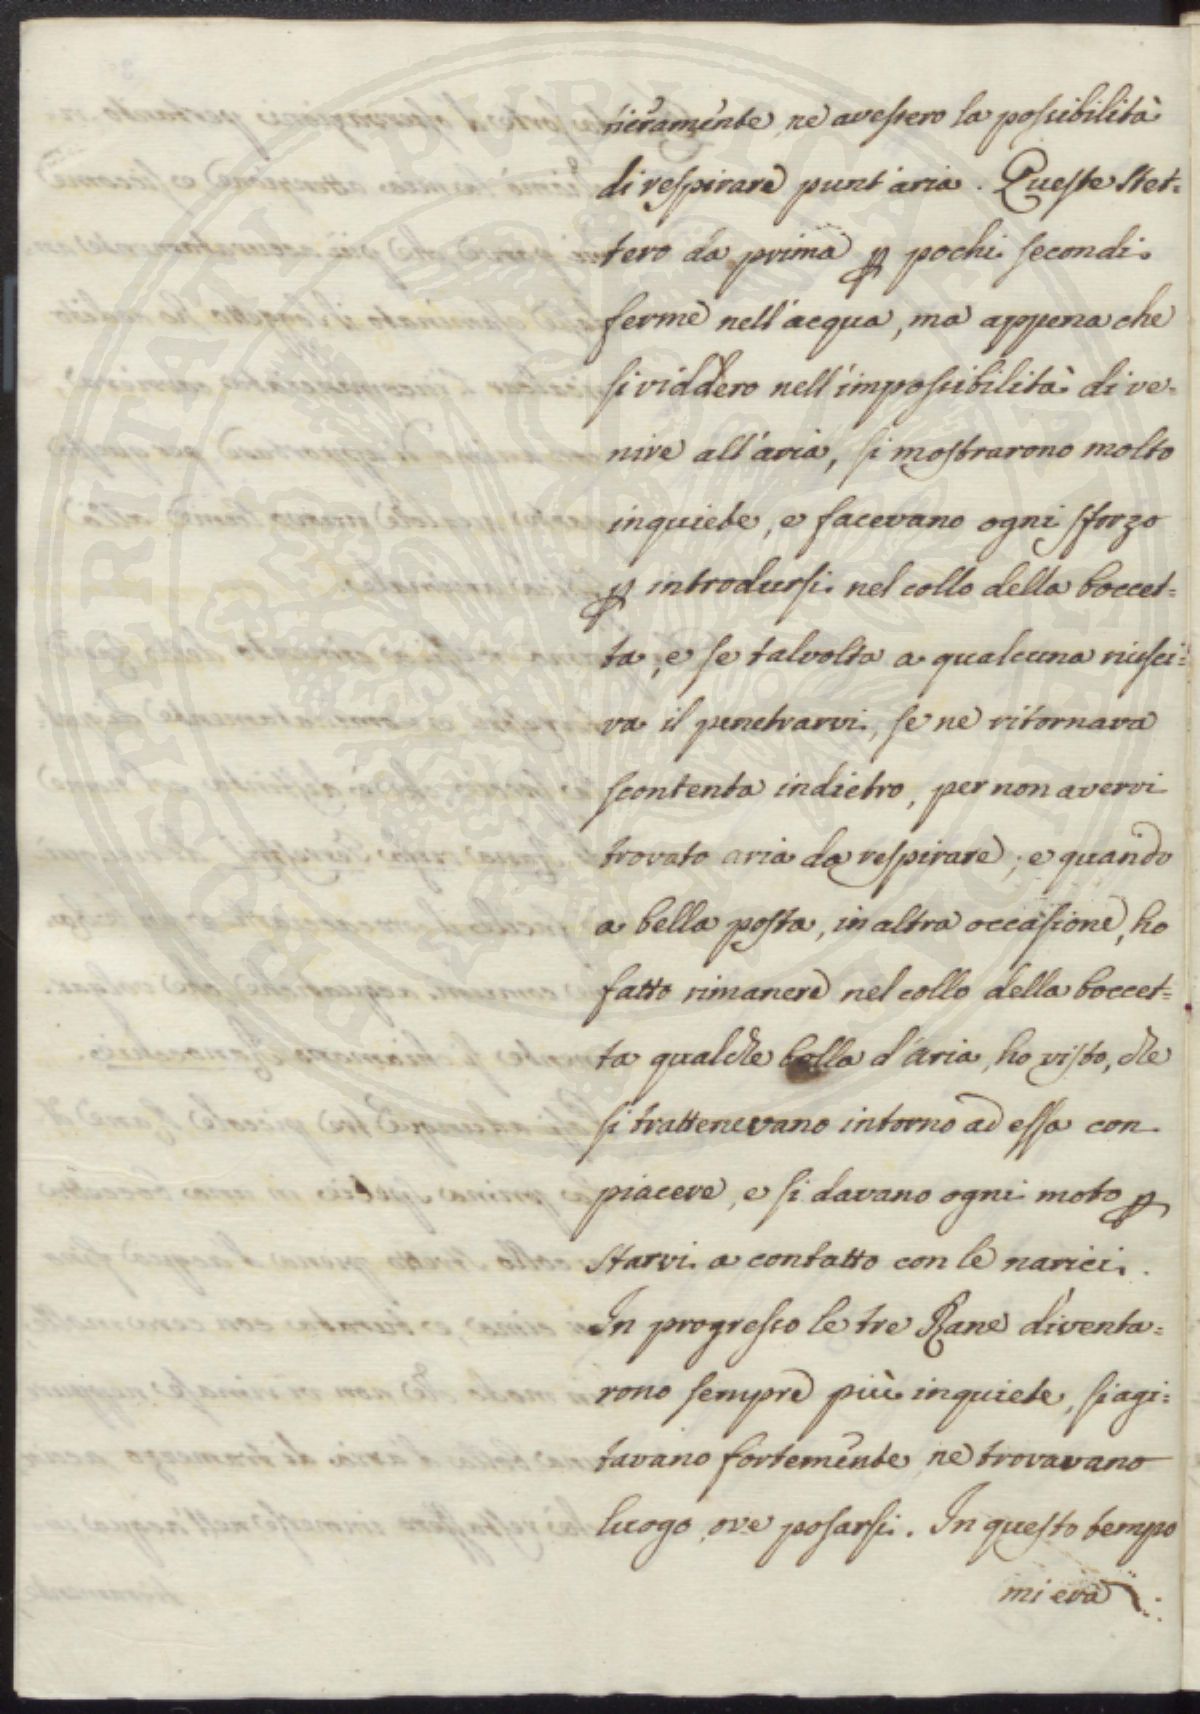 tieramente, nè avessero la possibilità
di respirare punt'aria. Queste stet=
tero da prima ꝑ pochi secondi
ferme nell'acqua, ma appena che
si viddero nell'impossibilità di ve=
nire all'aria, si mostrarono molto
inquiete, e facevano ogni sforzo
ꝑ introdursi nel collo della boccet=
ta, e se talvolta a qualcuna riusci=
va il penetrarvi, se ne ritornava
scontenta indietro, per non avervi
trovato aria da respirare; e quando
a bella posta, in altra occasione, ho
fatto rimanere nel collo della boccet=
ta qualche bolla d'aria, ho visto, che
si trattenevano intorno ad essa con
piacere, e si davano ogni moto ꝑ
starvi a contatto con le narici.
In progresso le tre Rane diventa=
rono sempre più inquiete, si agi=
tavano fortemente, nè trovavano
luogo, ove posarsi. In questo tempo
mi era